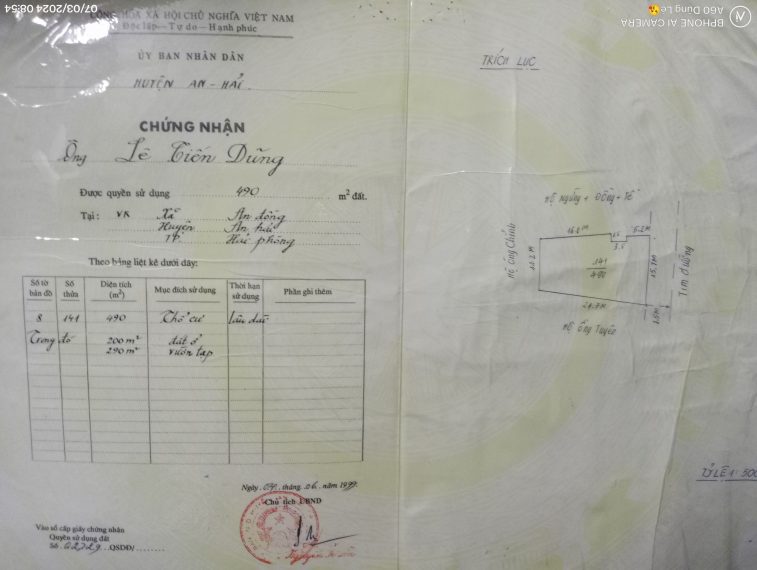 07/03/2024 08:54
CỘNG HÒA XÃ HỘI CHỦ NGHĨA VIỆT NAM
Độc lập - Tự do - Hạnh phúc
ỦY BAN NHÂN DÂN
HUYỆN AN - HẢI
CHỨNG NHẬN
Ông Lê Tiến Dũng
Được quyền sử dụng 490 m² đất.
Tại: VK Xã An đồng
Huyện An hải
TP. Hải phòng
Theo bảng liệt kê dưới đây:
Số tờ bản đồ Số thửa Diện tích (m²) Mục đích sử dụng Thời hạn sử dụng Phần ghi thêm
8 141 490 Thổ cư lâu dài
Trong đó 200 m² đất ở
290 m² vườn tạp
Ngày tháng 06 năm 1999
Chủ tịch UBND
Vào sổ cấp giấy chứng nhận
Quyền sử dụng đất
Số 02729 QSDĐ/
BPHONE AI CAMERA
A60 Dũng Lê
TRÍCH LỤC
HỘ NGỪNG + ĐỒNG + TẾ
5.2M
3.5
HỘ ÔNG CHỈNH
141
490
15.7M
TIM ĐƯỜNG
HỘ ÔNG TUYÊN
TỶ LỆ 1: 500